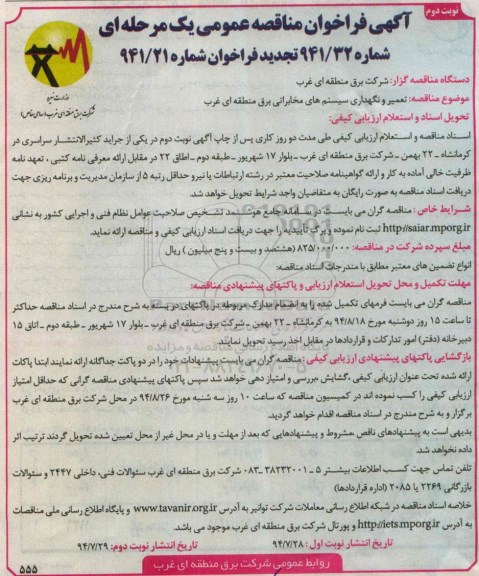 نوبت دوم
آگهی فراخوان مناقصه عمومی یک مرحله ای
شماره ۹۴۱/۳۲ تجدید فراخوان شماره ۹۴۱/۲۱
وزارت نیرو
شرکت برق منطقه ای غرب (سهامی خاص)
دستگاه مناقصه گزار: شرکت برق منطقه ای غرب
موضوع مناقصه: تعمیر و نگهداری سیستم های مخابراتی برق منطقه ای غرب
تحویل اسناد و استعلام ارزیابی کیفی:
اسناد مناقصه و استعلام ارزیابی کیفی طی مدت دو روز کاری پس از چاپ آگهی نوبت دوم در یکی از جراید کثیرالانتشار سراسری در
کرمانشاه ـ ۲۲ بهمن ـ شرکت برق منطقه ای غرب ـ بلوار ۱۷ شهریور ـ طبقه دوم ـ اطاق ۲۲ در مقابل ارائه معرفی نامه کتبی ، تعهد نامه
ظرفیت خالی آماده به کار و ارائه گواهینامه صلاحیت معتبر در رشته ارتباطات یا نیرو حداقل رتبه ۵ از سازمان مدیریت و برنامه ریزی جهت
دریافت اسناد مناقصه به صورت رایگان به متقاضیان واجد شرایط تحویل خواهد شد.
شرایط خاص : مناقصه گران می بایست در سامانه جامع هوشمند تشخیص صلاحیت عوامل نظام فنی و اجرایی کشور به نشانی
http://saiar.mporg.ir ثبت نام نموده و برگ تأییدیه را جهت دریافت اسناد ارزیابی کیفی و مناقصه ارائه نماید.
مبلغ سپرده شرکت در مناقصه: ۸۲۵/۰۰۰/۰۰۰ (هشتصد و بیست و پنج میلیون ) ریال
انواع تضمین های معتبر مطابق با مندرجات اسناد مناقصه:
مهلت تکمیل و محل تحویل استعلام ارزیابی و پاکتهای پیشنهادی مناقصه:
مناقصه گران می بایست فرمهای تکمیل شده را به انضمام مدارک مربوطه در پاکتهای در بسته به شرح مندرج در اسناد مناقصه حداکثر
تا ساعت ۱۵ روز دوشنبه مورخ ۹۴/۸/۱۸ به کرمانشاه ـ ۲۲ بهمن ـ شرکت برق منطقه ای غرب ـ بلوار ۱۷ شهریور ـ طبقه دوم ـ اتاق ۱۵
دبیرخانه (دفتر) امور تدارکات و قراردادها در مقابل اخذ رسید تحویل نمایند.
بازگشایی پاکتهای پیشنهادی ارزیابی کیفی : مناقصه گران می بایست پیشنهادات خود را در دو پاکت جداگانه ارائه نمایند ابتدا پاکات
ارائه شده تحت عنوان ارزیابی کیفی ،گشایش ،بررسی و امتیاز دهی خواهد شد سپس پاکتهای پیشنهادی مناقصه گرانی که حداقل امتیاز
ارزیابی کیفی را کسب نموده اند در کمیسیون مناقصه که ساعت ۱۰ روز سه شنبه مورخ ۹۴/۸/۲۶ در محل شرکت برق منطقه ای غرب
برگزار و به شرح مندرج در اسناد مناقصه اقدام خواهد گردید.
بدیهی است به پیشنهادهای ناقص ،مشروط و پیشنهادهایی که بعد از مهلت و یا در محل غیر از محل تعیین شده تحویل گردند ترتیب اثر
داده نخواهد شد.
تلفن تماس جهت کسب اطلاعات بیشتر ۵ ـ ۳۸۲۳۲۰۰۱ ـ۰۸۳ شرکت برق منطقه ای غرب سئوالات فنی، داخلی ۲۴۴۷ و سئوالات
بازرگانی ۲۲۶۹ یا ۲۰۸۵ (اداره قراردادها)
خلاصه اسناد مناقصه در شبکه اطلاع رسانی معاملات شرکت توانیر به آدرس www.tavanir.org.ir و پایگاه اطلاع رسانی ملی مناقصات
به آدرس http://iets.mporg.ir و پورتال شرکت برق منطقه ای غرب موجود می باشد.
تاریخ انتشار نوبت اول : ۹۴/۷/۲۸ تاریخ انتشار نوبت دوم: ۹۴/۷/۲۹
روابط عمومی شرکت برق منطقه ای غرب
۵۵۵